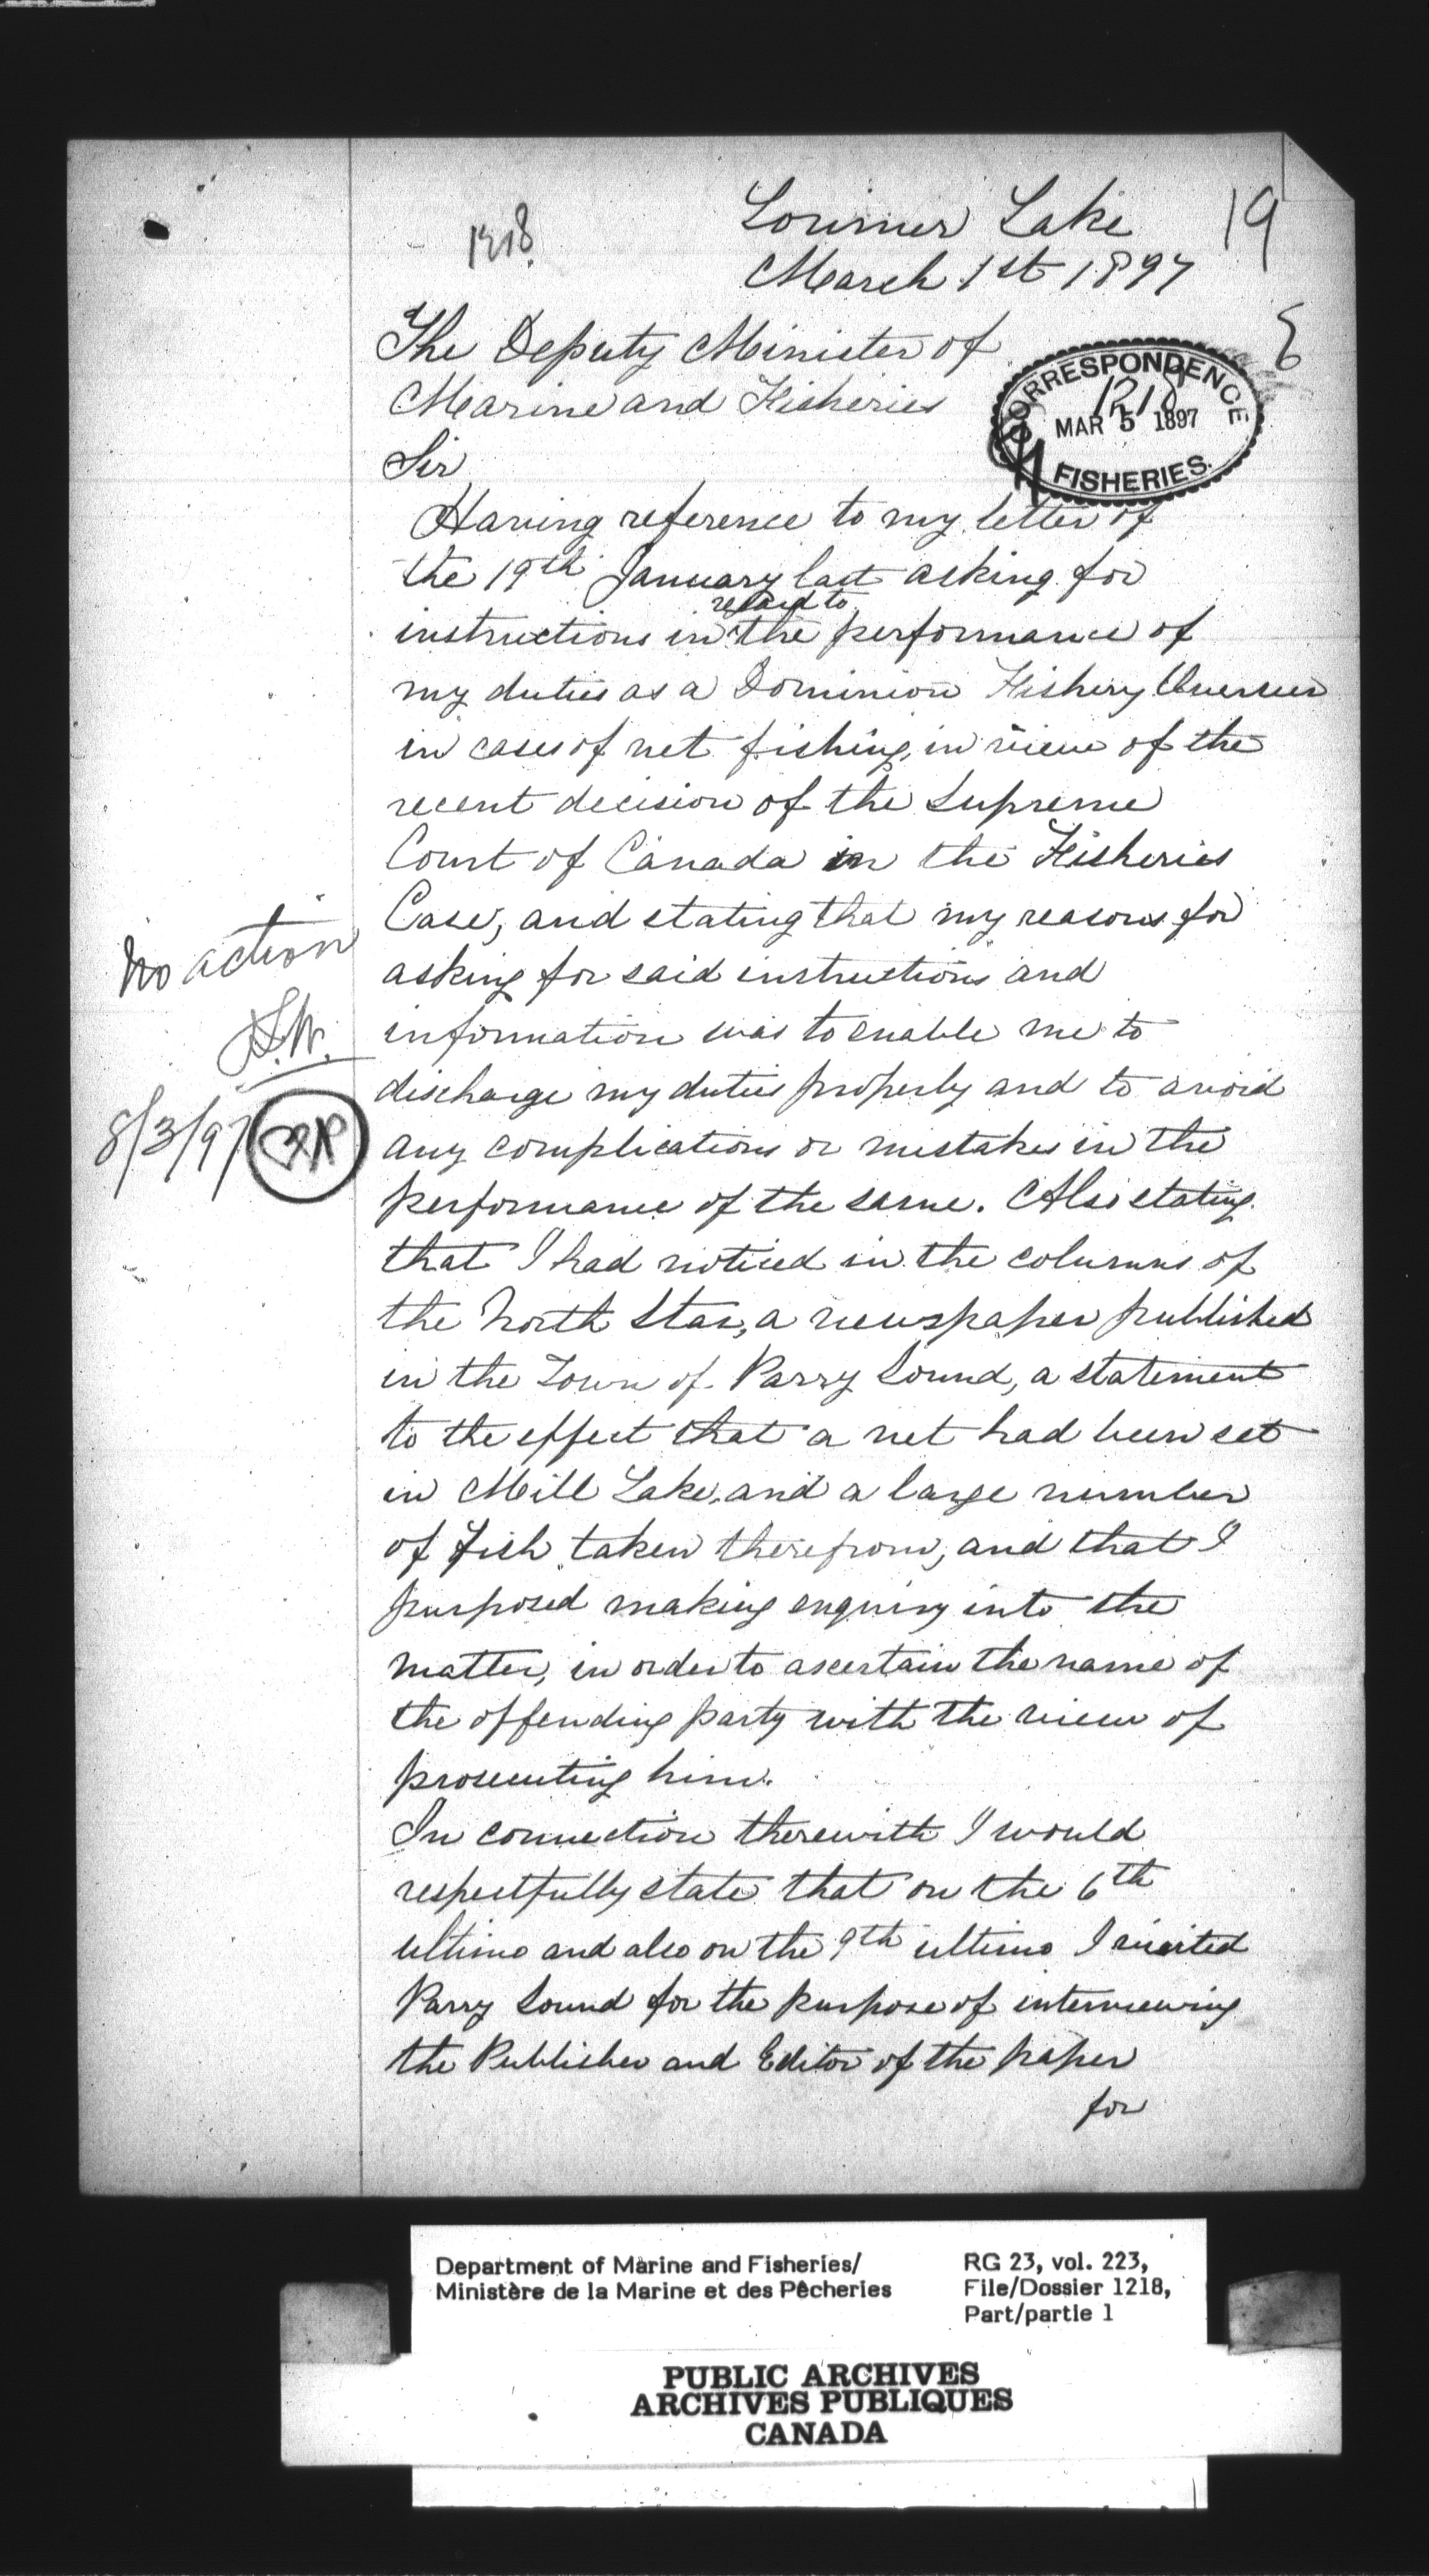 1218
Lorimer Lake
19
March 1st 1897
The Deputy Minister of
Marine and Fisheries
CORRESPONDENCE
1218
MAR 5 1897
FISHERIES.
Sir
Having reference to my letter of
the 19th January last asking for
regard to
instructions in the performance of
my duties as a Dominion Fishery Overseer
in cases of net fishing, in view of the
recent decision of the Supreme
Court of Canada in the Fisheries
Case, and stating that my reasons for
asking for said instructions and
information was to enable me to
discharge my duties properly and to avoid
any complications or mistakes in the
performance of the same. Also stating
that I had noticed in the columns of
the North Star, a newspaper published
in the Town of Parry Sound, a statement
to the effect that a net had been set
in Mill Lake, and a large number
of fish taken therefrom, and that I
purposed making enquiry into the
matter, in order to ascertain the name of
the offending party with the view of
prosecuting him.
In connection therewith I would
respectfully state that on the 6th
ultimo and also on the 9th ultimo I visited
Parry Sound for the purpose of interviewing
the Publisher and Editor of the paper
for
No action
8/3/97
Department of Marine and Fisheries/
Ministère de la Marine et des Pêcheries
RG 23, vol. 223,
File/Dossier 1218,
Part/partie 1
PUBLIC ARCHIVES
ARCHIVES PUBLIQUES
CANADA